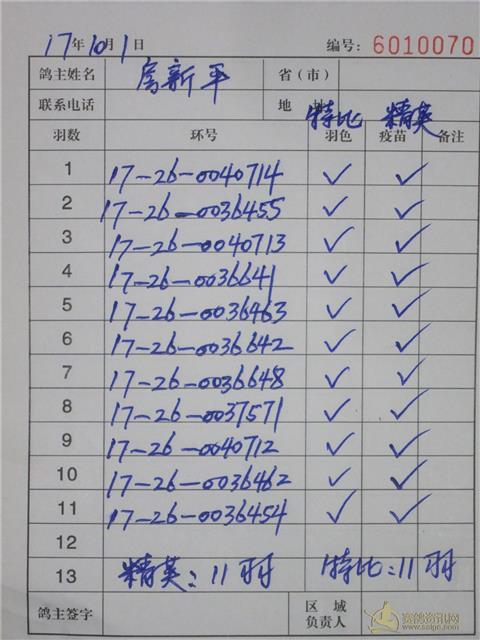 17年10月1日 编号: 6010070
鸽主姓名 房新平 省(市)
联系电话 地 址 特比 精英
羽数 环号 羽色 疫苗 备注
1 17-26-0040714 ✓ ✓
2 17-26-0036455 ✓ ✓
3 17-26-0040713 ✓ ✓
4 17-26-0036641 ✓ ✓
5 17-26-0036463 ✓ ✓
6 17-26-0036642 ✓ ✓
7 17-26-0036648 ✓ ✓
8 17-26-0037571 ✓ ✓
9 17-26-0040712 ✓ ✓
10 17-26-0036462 ✓ ✓
11 17-26-0036454 ✓ ✓
12
13 精英:11羽 特比:11羽
鸽主签字 区 域
负责人
赛鸽资讯网
www.saige.com